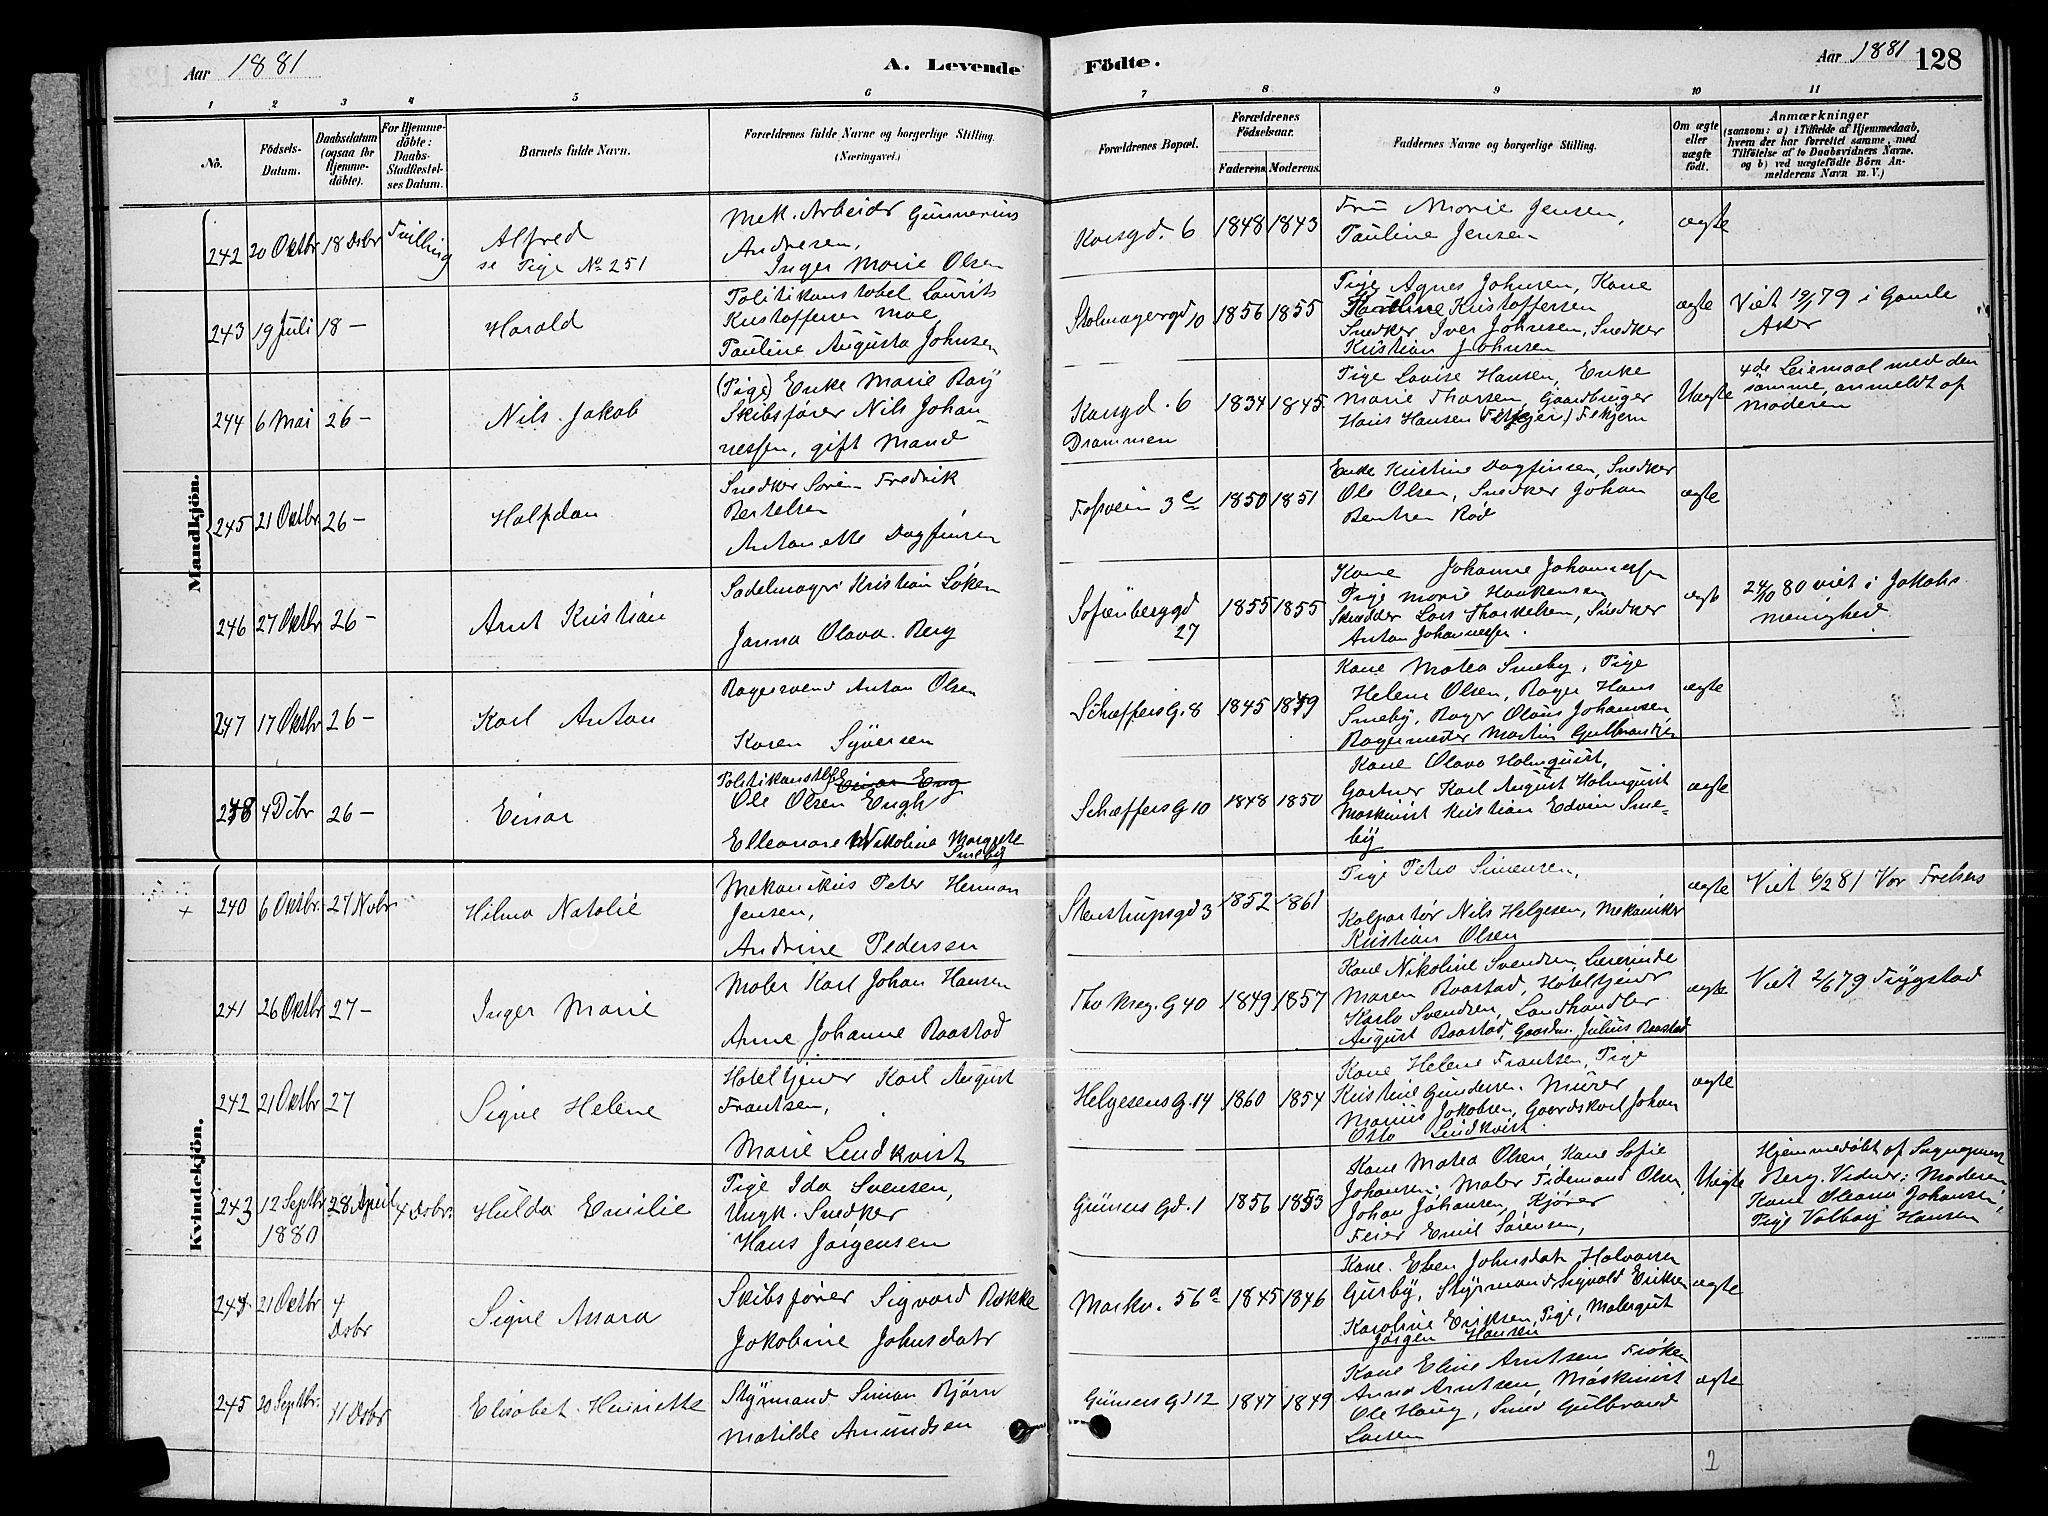 Aar 1881
A. Levende Födte.
Aar 1881 128
1 2 3 4 5 6 7 8 9 10 11
No.
Födsels-Datum.
Daabsdatum (ogsaa for Hjemmedöbte).
For Hjemmedöbte: Daabs-Stadfæstelses Datum.
Barnets fulde Navn.
Forældrenes fulde Navne og borgerlige Stilling.
(Næringsvei.)
Forældrenes Bopæl.
Forældrenes Födselsaar.
Faderens. Moderens.
Faddernes Navne og borgerlige Stilling.
Om ægte eller uægte födt.
Anmærkninger
(saasom: a) i Tilfælde af Hjemmedaab,
hvem der har forrettet samme, med
Tilföielse af to Daabsvidners Navne.
og b) ved uægtefödte Börn An-
melderens Navn m. V.)
Mandkjön.
242 20 Oktbr 18 Dsbr Tvilling
Alfred
se Pige No 251
Mek. Arbeider Gunnerius
Andresen,
Inger Marie Olsen
Korsgd. 6 1848 1843
Fru Marie Jensen,
Pauline Jensen
ægte
243 19 Juli 18 –
Harald
Politikonstabel Laurits
Kristoffersen Moe
Pauline Augusta Johnsen
Stolmagergd 10 1856 1855
Pige Agnes Johnsen, Kone
Karoline Kristoffersen
Snedker Iver Johnsen, Snedker
Kristian Johnsen
ægte
Viet 19/1 79 i Gamle
Aker
244 6 Mai 26 –
Nils Jakob
(Pige) Enke Marie Bay
Skibsfører Nils Johan-
nessen, gift Mand
Korsgd. 6
Drammen
1834 1845
Pige Lovise Hansen, Enke
Marie Thorsen, Gaardbruger
Hans Hansen Fiskjern
Uægte
4de Leiemaal med den
samme, anmeldt af
Moderen
245 21 Oktbr 26 –
Halfdan
Snedker Søren Fredrik
Bertelsen
Antonette Dagfinsen
Fossveien 3c 1850 1851
Enke Kristine Dagfinsen, Snedker
Ole Olsen, Snedker Johan
Bentsen Rød
ægte
246 27 Oktbr 26 –
Arnt Kristian
Sadelmager Kristian Løken
Janna Olava Berg
Sofienberggd 27 1855 1855
Kone Johanne Johannessen
Pige Marie Haakensen
Skrædder Lars Thorkelsen, Snedker
Anton Johannessen.
ægte
24/10 80 viet i Jakobs
menighed
247 17 Oktbr 26 –
Karl Anton
Bagersvend Anton Olsen
Karen Syversen
Schæffers G. 8 1845 1849
Kone Matea Smeby, Pige
Helene Olsen, Bager Hans
Smeby, Bager Olaus Johansen
Bagermester Martin Gulbrandsen
ægte
248 4 Dcbr 26 –
Einar
Politikonstbl
Ole Olsen Engh
Elleonare Nikoline Margrete
Smeby
Schæffers G 10 1848 1850
Kone Olava Holmquist,
Gartner Karl August Holmquist
Maskinist Kristian Edvin Sme-
by
ægte
Kvindekjön.
+ 240 6 Oktbr. 27 Nvbr
Hilma Natalie
Mekanikus Peter Herman
Jensen,
Andrine Pedersen
Stenstrupsgd 3 1852 1861
Pige Petra Simensen,
Kolportør Nils Helgesen, Mekaniker
Kristian Olsen
ægte
Viet 6/2 81 Vor Frelsers
241 26 Oktbr 27 –
Inger Marie
Maler Karl Johan Hansen
Anne Johanne Raastad
Tho Mey. G 40 1849 1857
Kone Nikoline Svendsen Lærerinde
Maren Raastad, Hotelkjener
Karlo Svendsen, Landhandler
August Raastad, Gaardm. Julius Raastad
ægte
Viet 2/6 79 Trygstad
242 21 Oktbr 27
Signe Helene
Hotelkjener Karl August
Frantsen,
Marie Lindkvist
Helgesens G. 14 1860 1854
Kone Helene Frantsen, Pige
Kristine Gundersen. Murer
Marius Jakobsen, Gaardskarl Johan
Otto Lindkvist.
ægte
243 12 Septbr 1880 28 April 4 Dsbr.
Hulda Emilie
Pige Ida Svensen,
Ungk. Snedker
Hans Jørgensen
Grüners Gd. 1 1856 1853
Kone Matea Olsen Kone Sofie
Johansen. Maler Fidemand Olsen,
Johan Johansen, Kjører
Feier Emil Sørensen,
Uægte
Hjemmedøbt af Sogneprest
Berg. Vidner: Moderen
Kone Oleana Johansen,
Pige Valborg Hansen
244 21 Oktbr 4 Dsbr
Signe Assara
Skibsfører Sigvard Bakke
Jakobine Johnsdatr
Markv. 56a 1845 1846
Kone Ellen Johnsdatr Halvorsen
Gusby, Styrmand Sigvald Eriksen
Karoline Eriksen, Pige, Malergut
Jørgen Hansen
ægte
245 20 Septbr. 11 Dsbr
Elisabet Henriette
Styrmand Simon Bjørn
Matilde Amundsen
Grüners Gd 12 1847 1849
Kone Eline Arntsen Frøken
Anna Arntsen, Maskinist
Ole Haug, Smed Gulbrand
Larsen
ægte
2